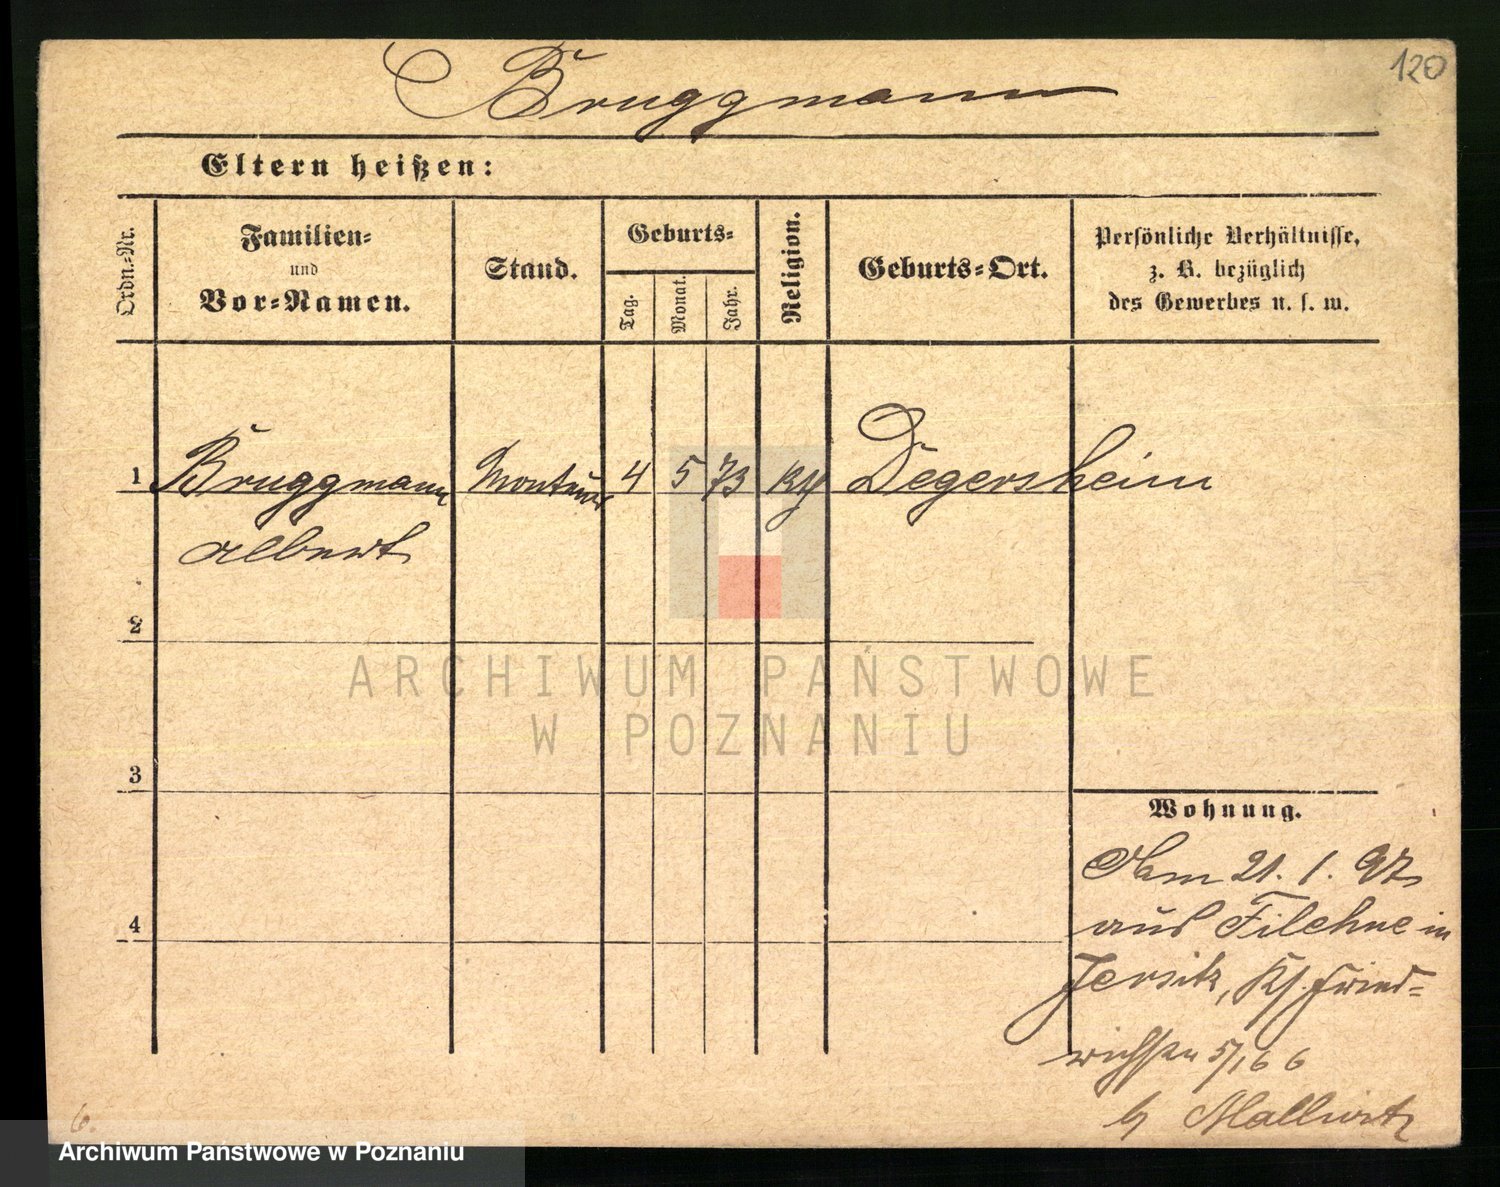 120
Bruggmann
Eltern heißen:
Ordn.-Nr.
Familien-
und
Vor-Namen.
Stand.
Geburts-
Tag.
Monat.
Jahr.
Religion.
Geburts-Ort.
Persönliche Verhältnisse,
z. B. bezüglich
des Gewerbes u. s. w.
1 Bruggmann Monteur 4 5 73 Degersheim
Albert
2
3
4
Wohnung.
21. 1. 97
aus Filehne in
Jersitz,
Mallwitz
6.
ARCHIWUM PAŃSTWOWE
W POZNANIU
Archiwum Państwowe w Poznaniu